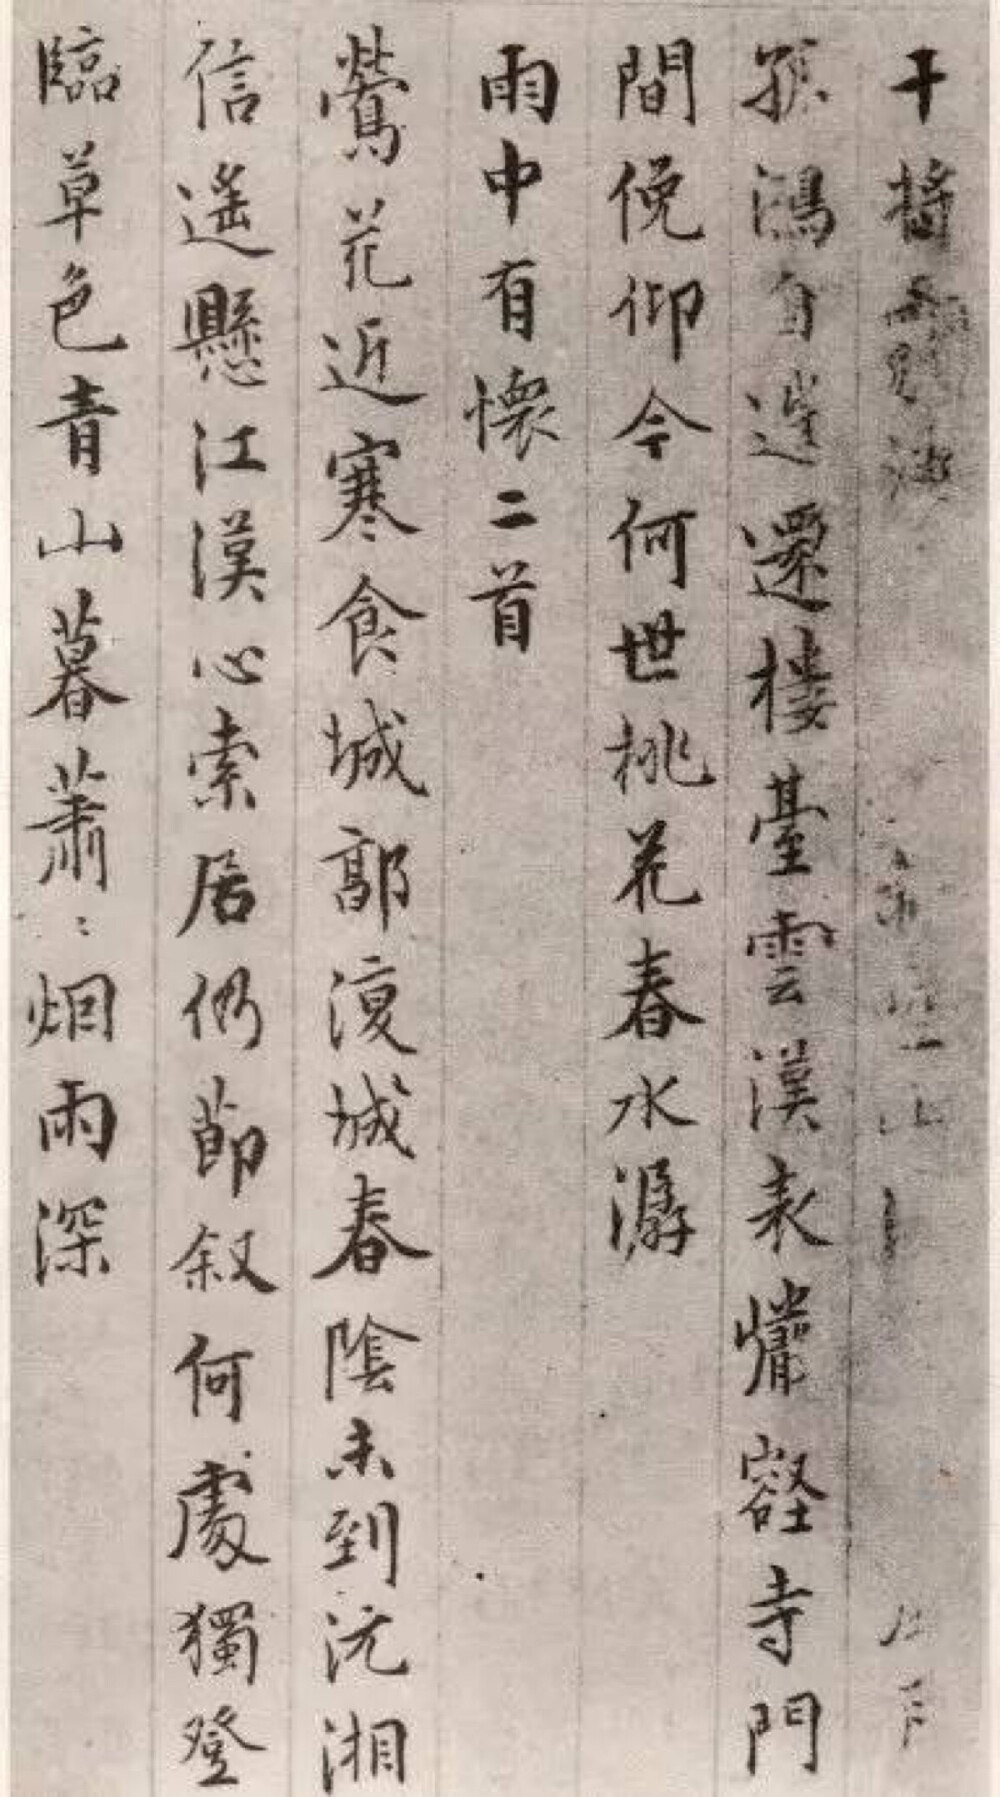 干將
孤鴻自遠還樓臺雲漢表燈寺門
間俛仰今何世桃花春水潺
雨中有懷二首
鶯花近寒食城郭復城春陰未到沅湘
信遙懸江漢心索居仍節叙何處獨登
臨草色青山暮蕭〻烟雨深